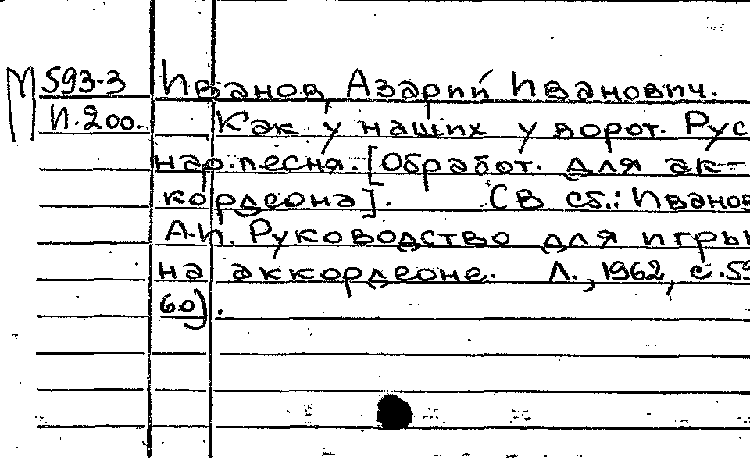 М 593-3 Иванов, Азарий Иванович.
И.200. Как у наших у ворот. Рус.
нар. песня. [Обработ. для ак-
кордеона]. (В сб.: Иванов
А.И. Руководство для игры
на аккордеоне. Л., 1962, с. 59
60).